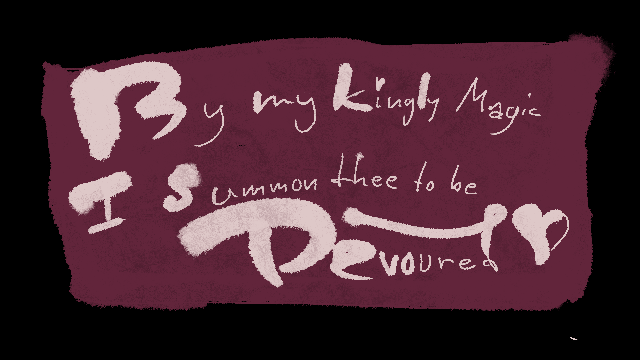 By my kingly Magic
I Summon thee to be
Devoured